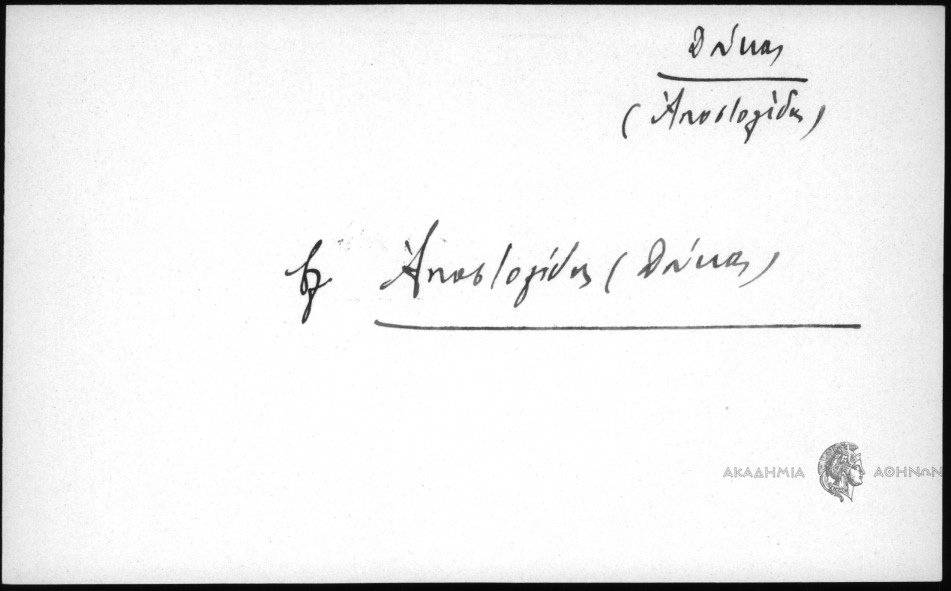 Δούκας
(Ἀποστολίδης)
βλ. Ἀποστολίδης (Δούκας)
ΑΚΑΔΗΜΙΑ ΑΘΗΝΩΝ